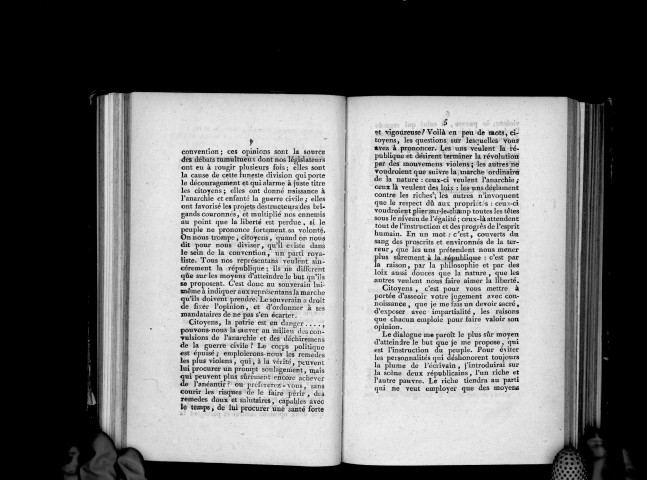 4
convention; ces opinions sont la source
des débats tumultueux dont nos législateurs
ont eu à rougir plusieurs fois; elles sont
la cause de cette funeste division qui porte
le découragement et qui alarme à juste titre
les citoyens; elles ont donné naissance à
l'anarchie et enfanté la guerre civile; elles
ont favorisé les projets destructeurs des bri-
gands couronnés, et multiplié nos ennemis
au point que la liberté est perdue, si le
peuple ne prononce fortement sa volonté.
On nous trompe, citoyens, quand on nous
dit pour nous diviser, qu'il existe dans
le sein de la convention, un parti roya-
liste. Tous nos représentans veulent sin-
cérement la république; ils ne diffèrent
que sur les moyens d'atteindre le but qu'ils
se proposent. C'est donc au souverain lui-
même à indiquer aux représentans la marche
qu'ils doivent prendre. Le souverain a droit
de fixer l'opinion, et d'ordonner à ses
mandataires de ne pas s'en écarter.
Citoyens, la patrie est en danger ....,
pouvons-nous la sauver au milieu des con-
vulsions de l'anarchie et des déchiremens
de la guerre civile? Le corps politique
est épuisé; emploierons-nous les remedes
les plus violens, qui, à la vérité, peuvent
lui procurer un prompt soulagement, mais
qui peuvent plus sûrement encore achever
de l'anéantir? ou préférerez-vous, sans
courir les risques de le faire périr, des
remedes doux et salutaires, capables avec
le temps, de lui procurer une santé forte
5
et vigoureuse? Voilà en peu de mots, ci-
toyens, les questions sur lesquelles vous
avez à prononcer. Les uns veulent la ré-
publique et désirent terminer la révolution
par des mouvemens violens; les autres ne
voudroient que suivre la marche ordinaire
de la nature: ceux-ci veulent l'anarchie;
ceux là veulent des loix: les uns déclament
contre les riches; les autres n'invoquent
que le respect dû aux propriétés: ceux-ci
voudroient plier sur-le-champ toutes les têtes
sous le niveau de l'égalité; ceux-là attendent
tout de l'instruction et des progrès de l'esprit
humain. En un mot: c'est, couverts du
sang des proscrits et environnés de la ter-
reur, que les uns prétendent nous mener
plus sûrement à la république: c'est par
la raison, par la philosophie et par des
loix aussi douces que la nature, que les
autres veulent nous faire aimer la liberté.
Citoyens, c'est pour vous mettre à
portée d'asseoir votre jugement avec con-
noissance, que je me fais un devoir sacré,
d'exposer avec impartialité, les raisons
que chacun emploie pour faire valoir son
opinion.
Le dialogue me paroît le plus sûr moyen
d'atteindre le but que je me propose, qui
est l'instruction du peuple. Pour éviter
les personnalités qui déshonorent toujours
la plume de l'écrivain, j'introduirai sur
la scène deux républicains, l'un riche et
l'autre pauvre. Le riche tiendra au parti
qui ne veut employer que des moyens